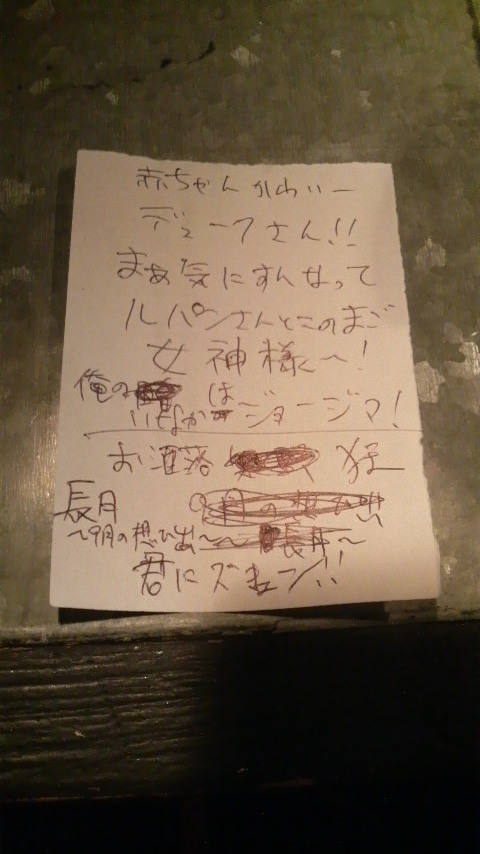 赤ちゃんかわいー
デュークさん!!
まあ気にすんなって
ルパンさんとこのまご
女神様〜!
俺の
いなかはジョージマ!
お洒落 狂
長月
〜9月の想ひ出〜
君にズキュン!!